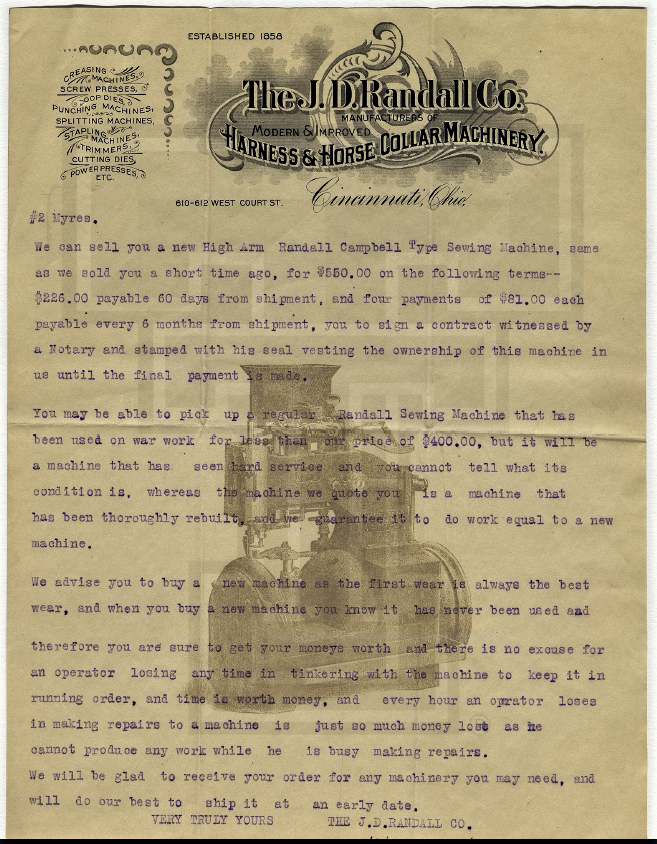 ESTABLISHED 1858
CREASING MACHINES,
SCREW PRESSES,
LOOP DIES,
PUNCHING MACHINES,
SPLITTING MACHINES,
STAPLING MACHINES,
TRIMMERS,
CUTTING DIES,
POWER PRESSES,
ETC.
The J. D. Randall Co.
MANUFACTURERS OF
MODERN & IMPROVED
HARNESS & HORSE COLLAR MACHINERY.
610-612 WEST COURT ST. Cincinnati, Ohio.
#2 Myres.
We can sell you a new High Arm Randall Campbell Type Sewing Machine, same
as we sold you a short time ago, for $550.00 on the following terms--
$226.00 payable 60 days from shipment, and four payments of $81.00 each
payable every 6 months from shipment, you to sign a contract witnessed by
a Notary and stamped with his seal vesting the ownership of this machine in
us until the final payment is made.
You may be able to pick up a regular Randall Sewing Machine that has
been used on war work for less than our price of $400.00, but it will be
a machine that has seen hard service and you cannot tell what its
condition is, whereas the machine we quote you is a machine that
has been thoroughly rebuilt, and we guarantee it to do work equal to a new
machine.
We advise you to buy a new machine as the first wear is always the best
wear, and when you buy a new machine you know it has never been used and
therefore you are sure to get your moneys worth and there is no excuse for
an operator losing any time in tinkering with the machine to keep it in
running order, and time is worth money, and every hour an oprator loses
in making repairs to a machine is just so much money lost as he
cannot produce any work while he is busy making repairs.
We will be glad to receive your order for any machinery you may need, and
will do our best to ship it at an early date.
VERY TRULY YOURS THE J.D.RANDALL CO.